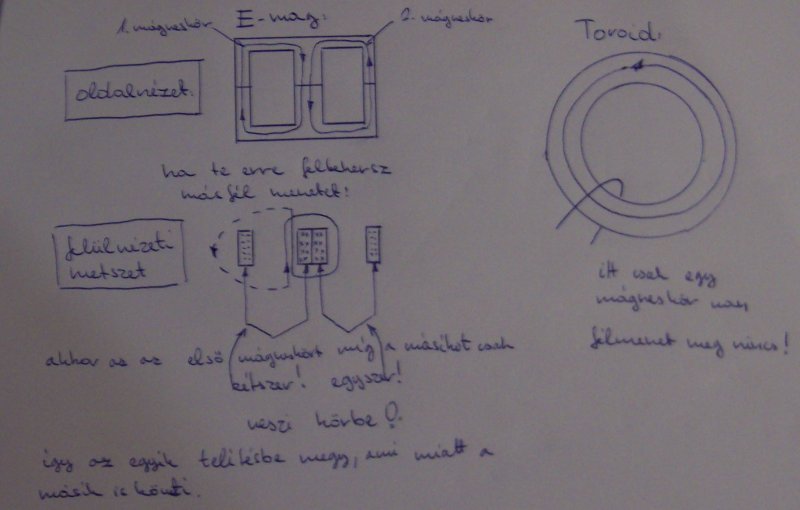 E-mag:
1. mágneskör
2. mágneskör
Toroid:
oldalnézet:
ha te erre feltekersz
másfél menetet:
felülnézeti
metszet
itt csak egy
mágneskör van,
félmenet meg nincs!
akkor az az első mágneskört míg a másikat csak
kétszer! egyszer!
veszi körbe!
így az egyik telítésbe megy, ami miatt a
másik is követi.